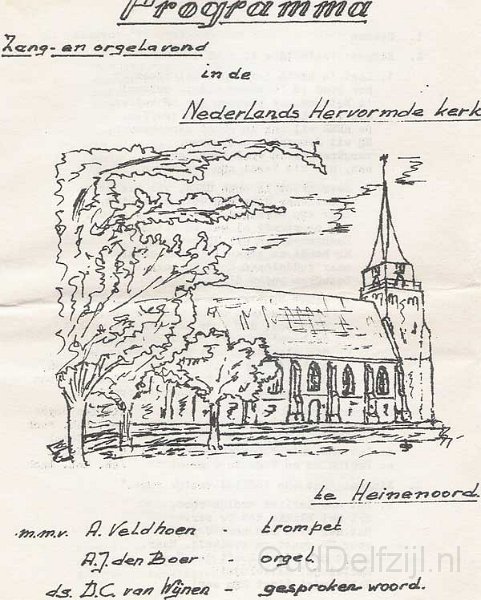 Programma
Zang- en orgelavond
in de
Nederlands Hervormde kerk
te Heinenoord.
m.m.v. A. Veldhoen - trompet
A.J. den Boer - orgel
ds. D.C. van Wijnen - gesproken woord.
OudDelfzijl.nl